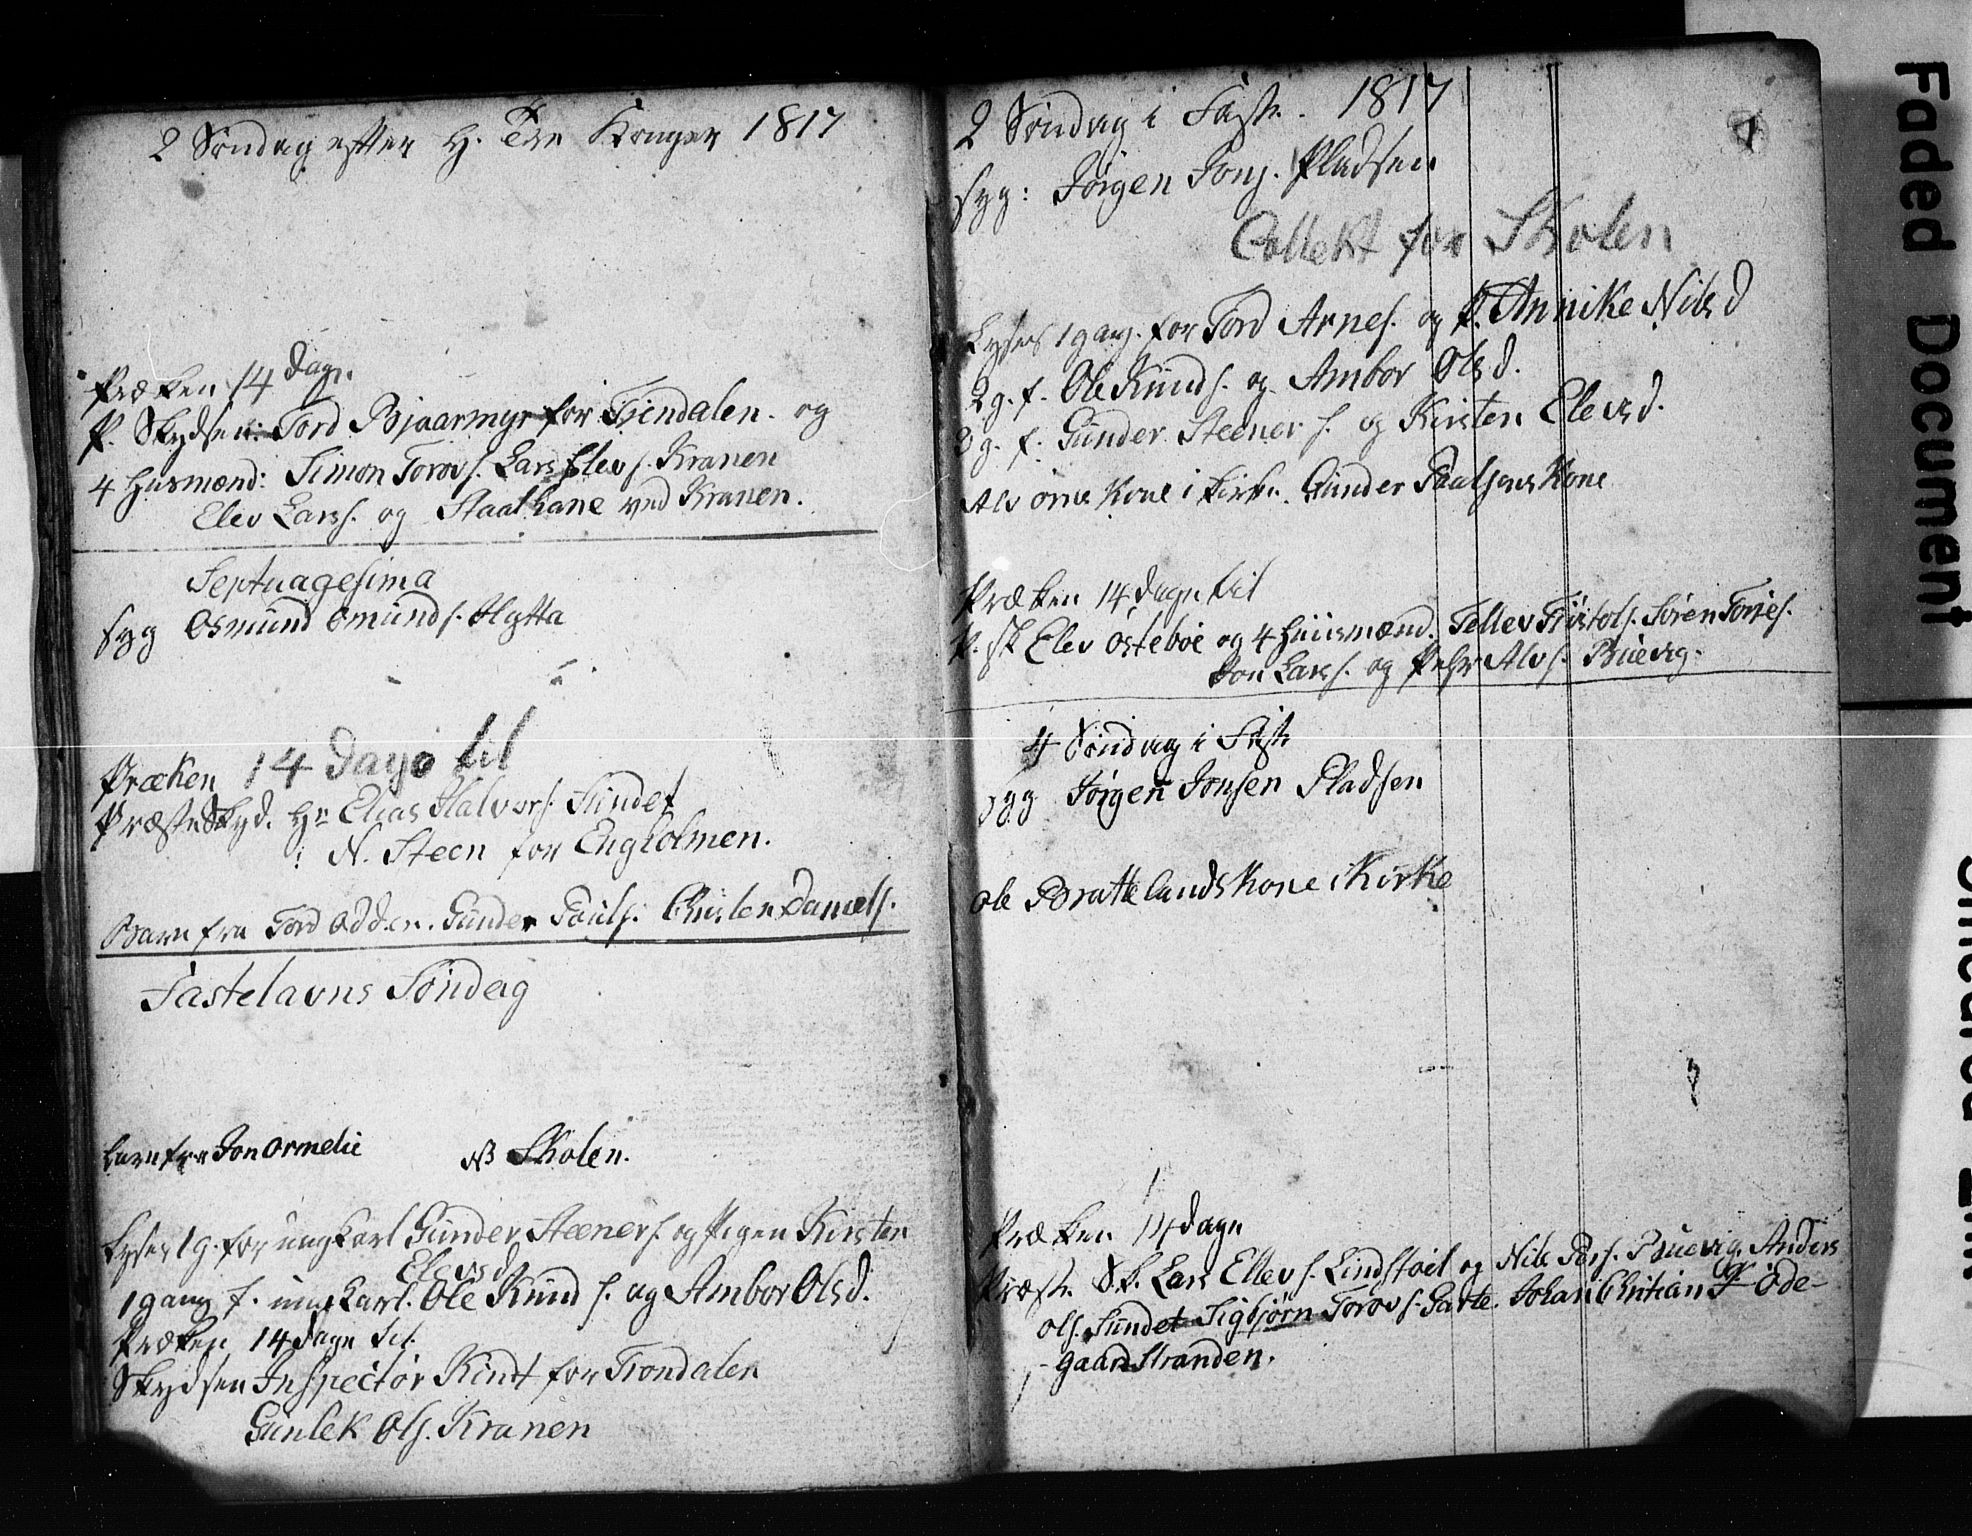 2 Søndag efter H. Tre Konger 1817
Præken 14 Dage
P. Skydsen: Tord Bjaarmyr for Trendalen. og
4 Husmænd: Simon Torovs. Lars Elevs. Kranen
Elev Larss. og Staalhane ved Kranen.
Septuagesima
syg Osmund Omunds. Hytta
Præken 14 Dage til
PræsteSkyd. Hr Elias Halvors. Sundet
: N. Steen for Engholmen.
Barn fra Tord Odden. Gunder Pouls. Christen Daniels.
Fastelavns Søndag
barn fra Jon Ormelie NB Skolen.
Lyses 1 g. for ungkarl Gunder Steeners. og Pigen Kirsten
Elevsd
1 gang f. ungkarl. Ole Knuds. og Ambor Olsd.
Præken 14 Dage til.
Skydsen Inspectør Kindt for Trondalen
Gunlek Ols. Kranen
2 Søndag i Faste. 1817
7
syg: Jørgen Jons. Pladsen
Collekt for Skolen
Lyses 1 gang. for Tord Arnes. og P. Annike Nilsd
2 g. f. Ole Knuds. og Ambor Olsd.
3 g. f. Gunder Steeners. og Kirsten Elevsd.
Alv Kone i Kirke. Gunder Paalsens Kone
Præken 14 Dage til
P. sk Elev Østebøe og 4 Huusmænd. Tellev Tjøstols. Søren Torjes.
Jon Larss. og Pehr Alvs. Buevig.
4 Søndag i Faste
syg Jørgen Jonsen Pladsen
Ole Brattelands Kone i Kirke
Præken 14 Dage
Præste Sk. Lars Ellevs. Lindstøil og Nils Pers. Buevig. Anders
Ols. Sundet Sigbjørn Torovs. Garte. Johan Christian Øde-
gaardStranden.
Faded Document